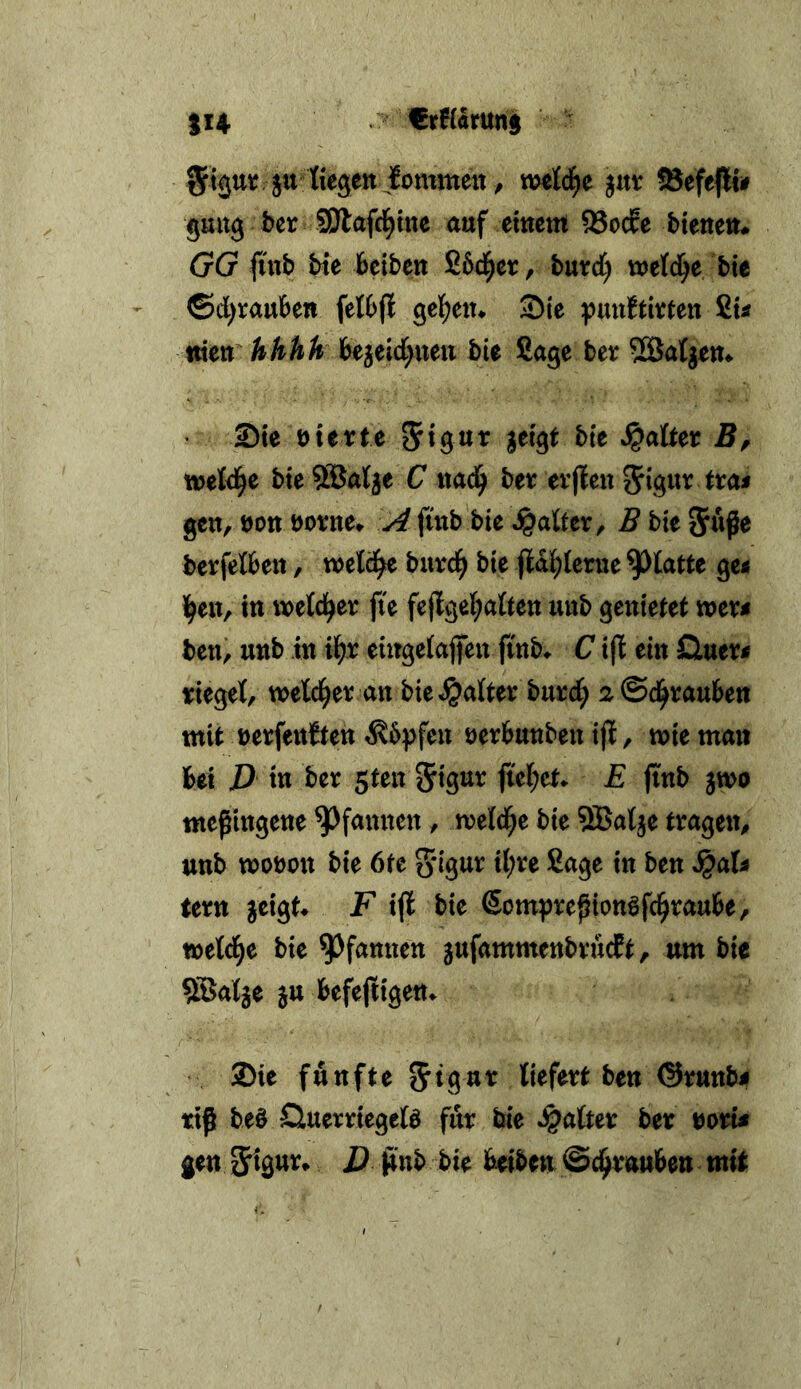 314 Erklärung
Figur zu liegen kommen, welche zur Befesti⸗
gung der Maschine auf einem Bocke dienen.
GG sind die beiden Löcher, durch welche die
Schrauben selbst gehen. Die punktirten Li⸗
nien hhhh bezeichnen die Lage der Walzen.
Die vierte Figur zeigt die Halter B,
welche die Walze C nach der ersten Figur tra⸗
gen, von vorne. A sind die Halter, B die Füße
derselben, welche durch die stählerne Platte ge⸗
hen, in welcher sie festgehalten und genietet wer⸗
den, und in ihr eingelassen sind. C ist ein Quer⸗
riegel, welcher an die Halter durch 2 Schrauben
mit versenkten Köpfen verbunden ist, wie man
bei D in der 5ten Figur siehet. E sind zwo
meßingene Pfannen, welche die Walze tragen,
und wovon die 6te Figur ihre Lage in den Hal⸗
tern zeigt. F ist die Compreßionsschraube,
welche die Pfannen zusammendrückt, um die
Walze zu befestigen.
Die fünfte Figur liefert den Grund⸗
riß des Querriegels für die Halter der vori⸗
gen Figur. D sind die beiden Schrauben mit